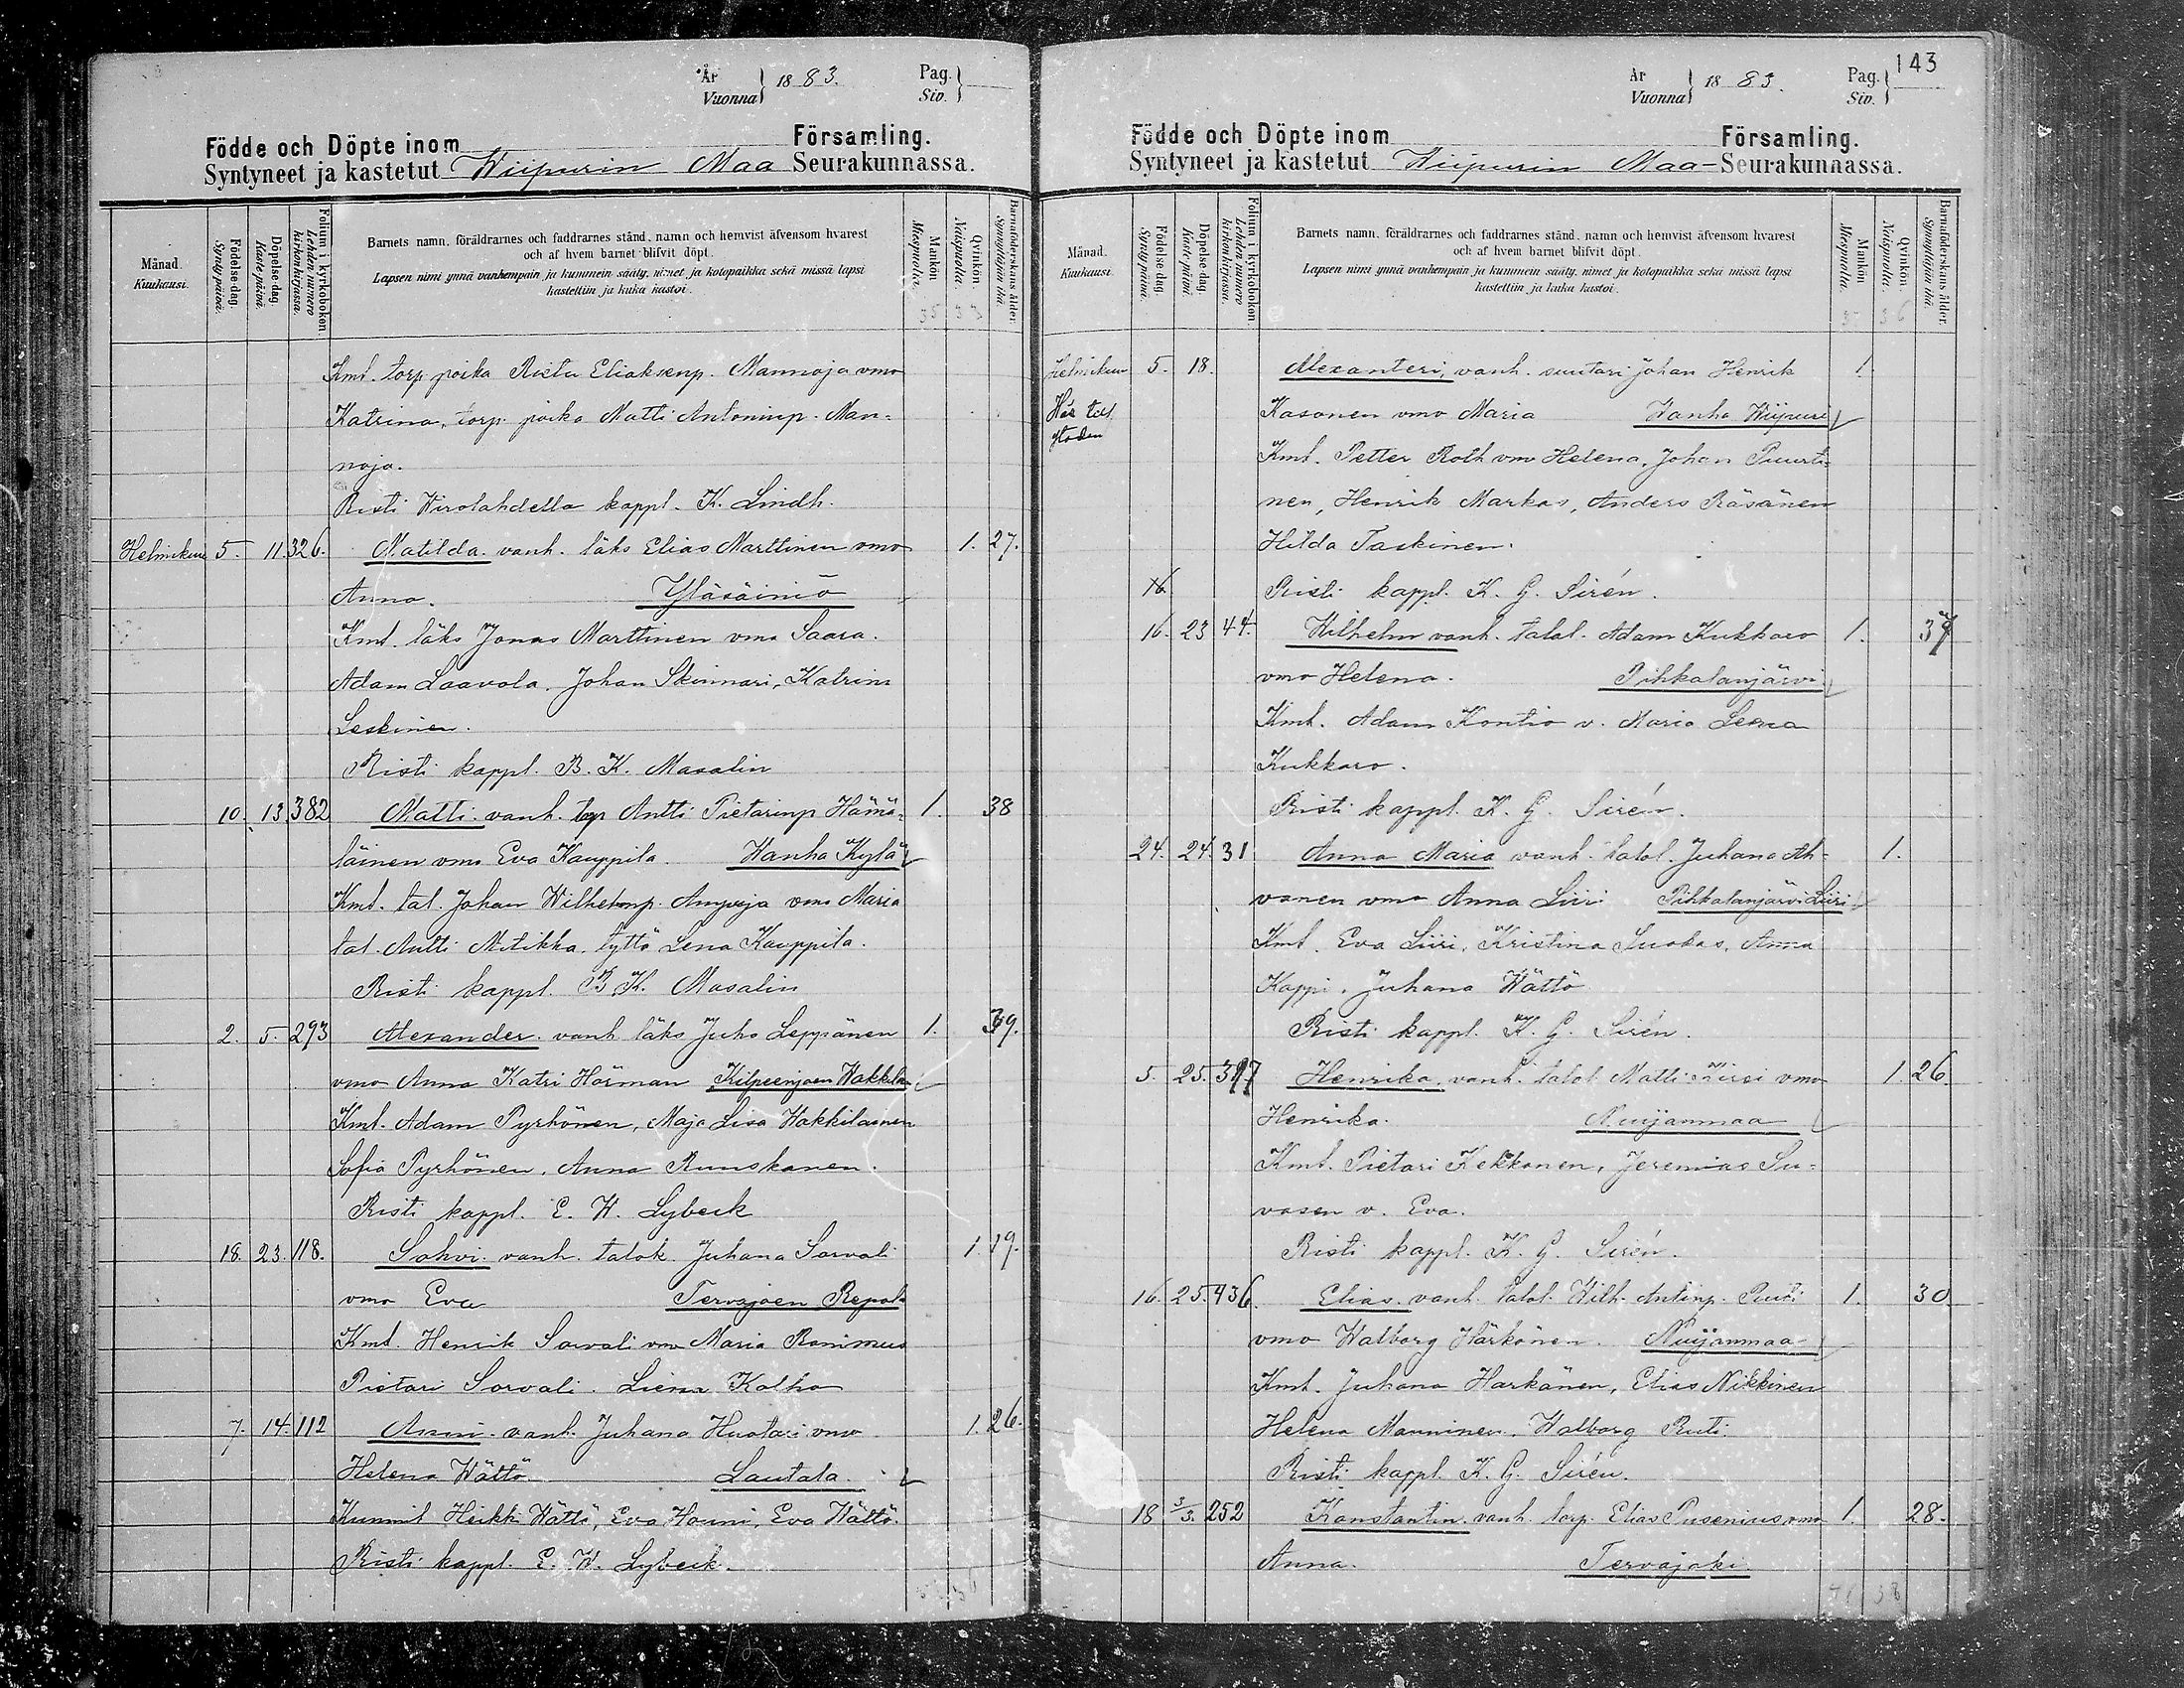 År
Vuonna } 1883.
Pag.
Siv. }
Födde och Döpte inom Församling.
Syntyneet ja kastetut Wiipurin Maa Seurakunnassa.
Månad.
Kuukausi.
Födelse-dag.
Syntypäivä.
Döpelse-dag.
Kaste-päivä.
Folium i kyrkoboken.
Lehden numero kirkonkirjassa.
Barnets namn, föräldrarnes och faddrarnes stånd, namn och hemvist äfvensom hvarest
och af hvem barnet blifvit döpt.
Lapsen nimi ynnä vanhempain ja kummein sääty, nimet ja kotopaikka sekä missä lapsi
kastettiin ja kuka kastoi.
Mankön.
Miespuolia.
Qvinkön.
Naispuolia.
Barnaföderskans ålder.
Synnyttäjän ikä.
35 33
Kmt. torp. poika Ristu Eliaksenp. Mannoja vmo
Katrina, torp. poika Matti Antoninp. Man-
noja.
Risti Wirolahdella kappl. K. Lindh.
Helmikuu 5. 11. 326. Matilda. vanh. läks Elias Marttinen vmo 1. 27.
Anna. Yläsäiniö
Kmt. läks Jonas Marttinen vmo Saara.
Adam Laavola, Johan Skinnari, Katrina
Leskinen.
Risti kappl. B. K. Masalin
10. 13. 382 Matti. vanh. torp Antti Pietarinp Hämä- 1. 38
läinen vmo Eva Kauppila. Wanha Kylä
Kmt. tal. Johan Wilhelmp. Ampuja vmo Maria
tal. Antti Mitikka, tyttö Lena Kauppila.
Risti kappl. B. K. Masalin
2. 5. 293 Alexander. vanh läks Juho Leppänen 1. 39.
vmo Anna Katri Hörman Kilpeenjoen Wakkila
Kmt. Adam Pyrhönen, Maja Lisa Wakkilainen
Sofia Pyrhönen, Anna Ruuskanen.
Risti kappl. E. W. Lybeck
18. 23. 118. Sohvi. vanh. talok. Juhana Sorvali 1. 19.
vmo Eva Tervajoen Repola
Kmt. Henrik Sorvali vmo Maria Ronimus
Pietari Sorvali. Liena Kolho
7. 14. 112 Anni. vanh. Juhana Huotari vmo 1. 26.
Helena Wättö Lautala.
Kummit Heikki Wättö, Eva Houni, Eva Wättö.
Risti kappl. E. W. Lybeck.
36
143
År
Vuonna } 1883.
Pag.
Siv. }
Födde och Döpte inom Församling.
Syntyneet ja kastetut Wiipurin Maa- Seurakunnassa.
Månad.
Kuukausi.
Födelse-dag.
Syntypäivä.
Döpelse-dag.
Kaste-päivä.
Folium i kyrkoboken.
Lehden numero kirkonkirjassa.
Barnets namn, föräldrarnes och faddrarnes stånd, namn och hemvist äfvensom hvarest
och af hvem barnet blifvit döpt.
Lapsen nimi ynnä vanhempain ja kummein sääty, nimet ja kotopaikka sekä missä lapsi
kastettiin ja kuka kastoi.
Mankön.
Miespuolia.
Qvinkön.
Naispuolia.
Barnaföderskans ålder.
Synnyttäjän ikä.
36
Helmikuu 5. 18. Alexanteri, vanh. suutari Johan Henrik 1.
Kasonen vmo Maria Wanha Wiipuri
Kmt. Petter Roth vmo Helena, Johan Puurti-
nen, Henrik Markas, Anders Räsänen
Hilda Taskinen.
16. Risti kappl. K. G. Sirén.
16. 23 44. Wilhelm vanh. talol. Adam Kukkaro 1. 37
vmo Helena. Pihkalanjärvi
Kmt. Adam Kontio v. Maria Leena
Kukkaro.
Risti kappl. K. G. Sirén.
24. 24. 31 Anna Maria vanh. talol. Juhana Ah- 1.
vonen vmo Anna Liiri Pihkalanjärvi Liiri
Kmt. Eva Liiri, Kristina Suokas, Anna
Kappi, Juhana Wättö
Risti kappl. K. G. Sirén.
5. 25. 397 Henrika. vanh. talol Matti Kirsi vmo 1. 26.
Henrika. Nuijammaa
Kmt. Pietari Kekkonen, Jeremias Su-
vosen v. Eva.
Risti kappl. K. G. Sirén.
16. 25. 436. Elias. vanh. talol. Wilh. Antinp. Ruti 1. 30.
vmo Walborg Härkönen. Nuijammaa
Kmt. Juhana Harkönen, Elias Nikkinen
Helena Manninen. Walborg Ruti.
Risti kappl. K. G. Sirén.
18 3/3. 252 Konstantin. vanh. torp. Elias Pusenius vmo 1. 28.
Anna. Tervajoki
38